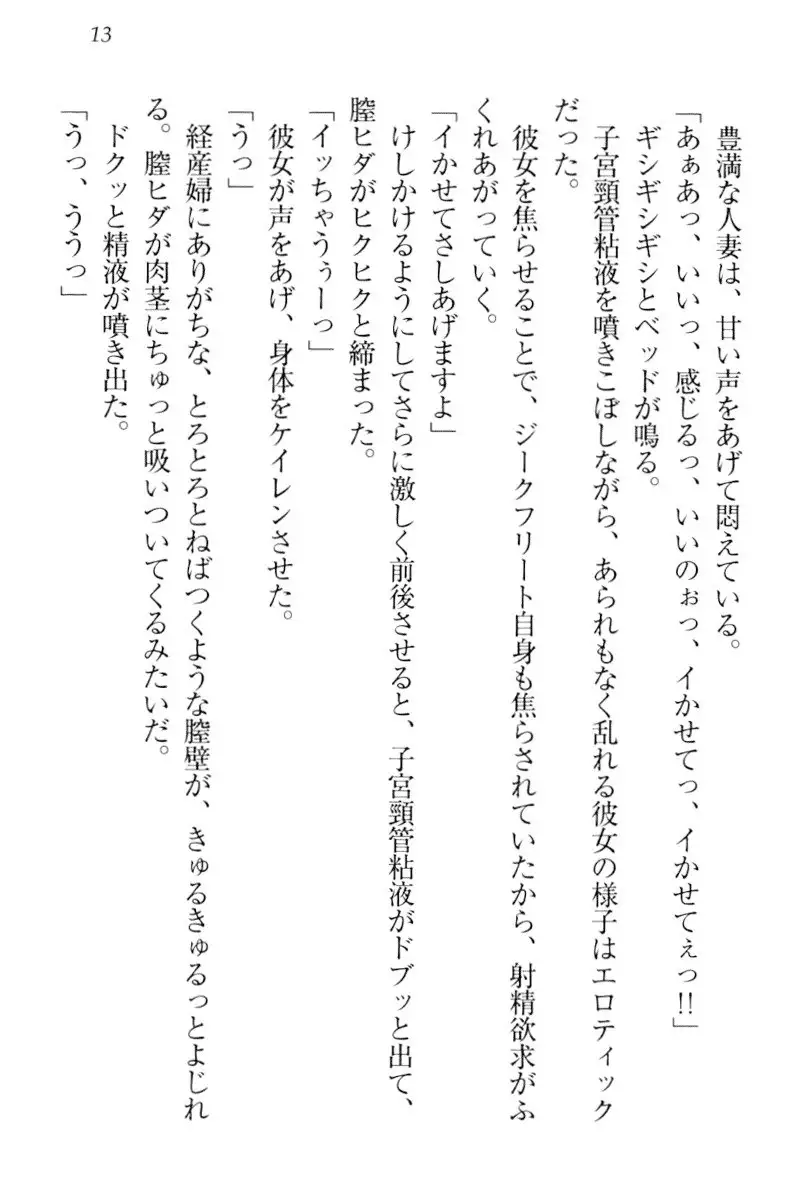 13
豊満な人妻は、甘い声をあげて悶えている。
「あぁあっ、いいっ、感じるっ、いいのぉっ、イかせてっ、イかせてぇっ!!」
ギシギシギシとベッドが鳴る。
子宮頸管粘液を噴きこぼしながら、あられもなく乱れる彼女の様子はエロティック
だった。
彼女を焦らせることで、ジークフリート自身も焦らされていたから、射精欲求がふ
くれあがっていく。
「イかせてさしあげますよ」
けしかけるようにしてさらに激しく前後させると、子宮頸管粘液がドブッと出て、
膣ヒダがヒクヒクと締まった。
「イッちゃうぅーっ」
彼女が声をあげ、身体をケイレンさせた。
「うっ」
経産婦にありがちな、とろとろとねばつくような膣壁が、きゅるきゅるっとよじれ
る。膣ヒダが肉茎にちゅっと吸いついてくるみたいだ。
ドクッと精液が噴き出た。
「うっ、ううっ」